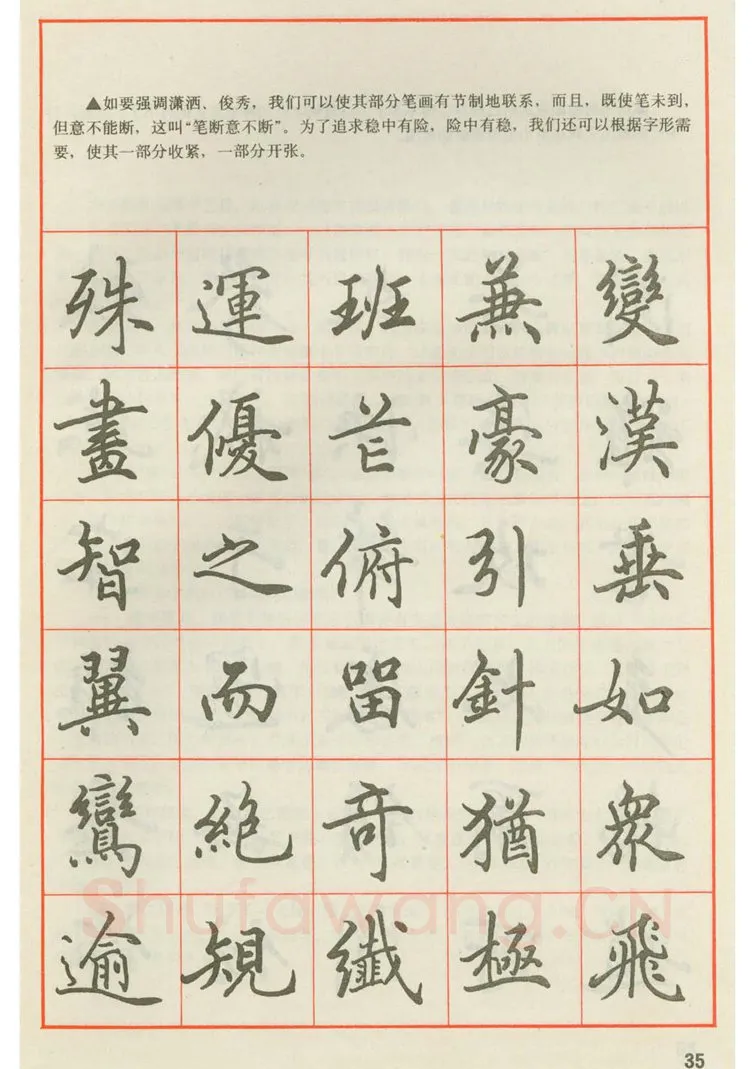 ▲如要强调潇洒、俊秀，我们可以使其部分笔画有节制地联系，而且，既使笔未到，
但意不能断，这叫“笔断意不断”。为了追求稳中有险，险中有稳，我们还可以根据字形需
要，使其一部分收紧，一部分开张。
變漢垂如眾飛
兼豪引針猶極
班芒俯留奇纖
運優之而絶規
殊畫智翼鸞逾
Shufawang.CN
35